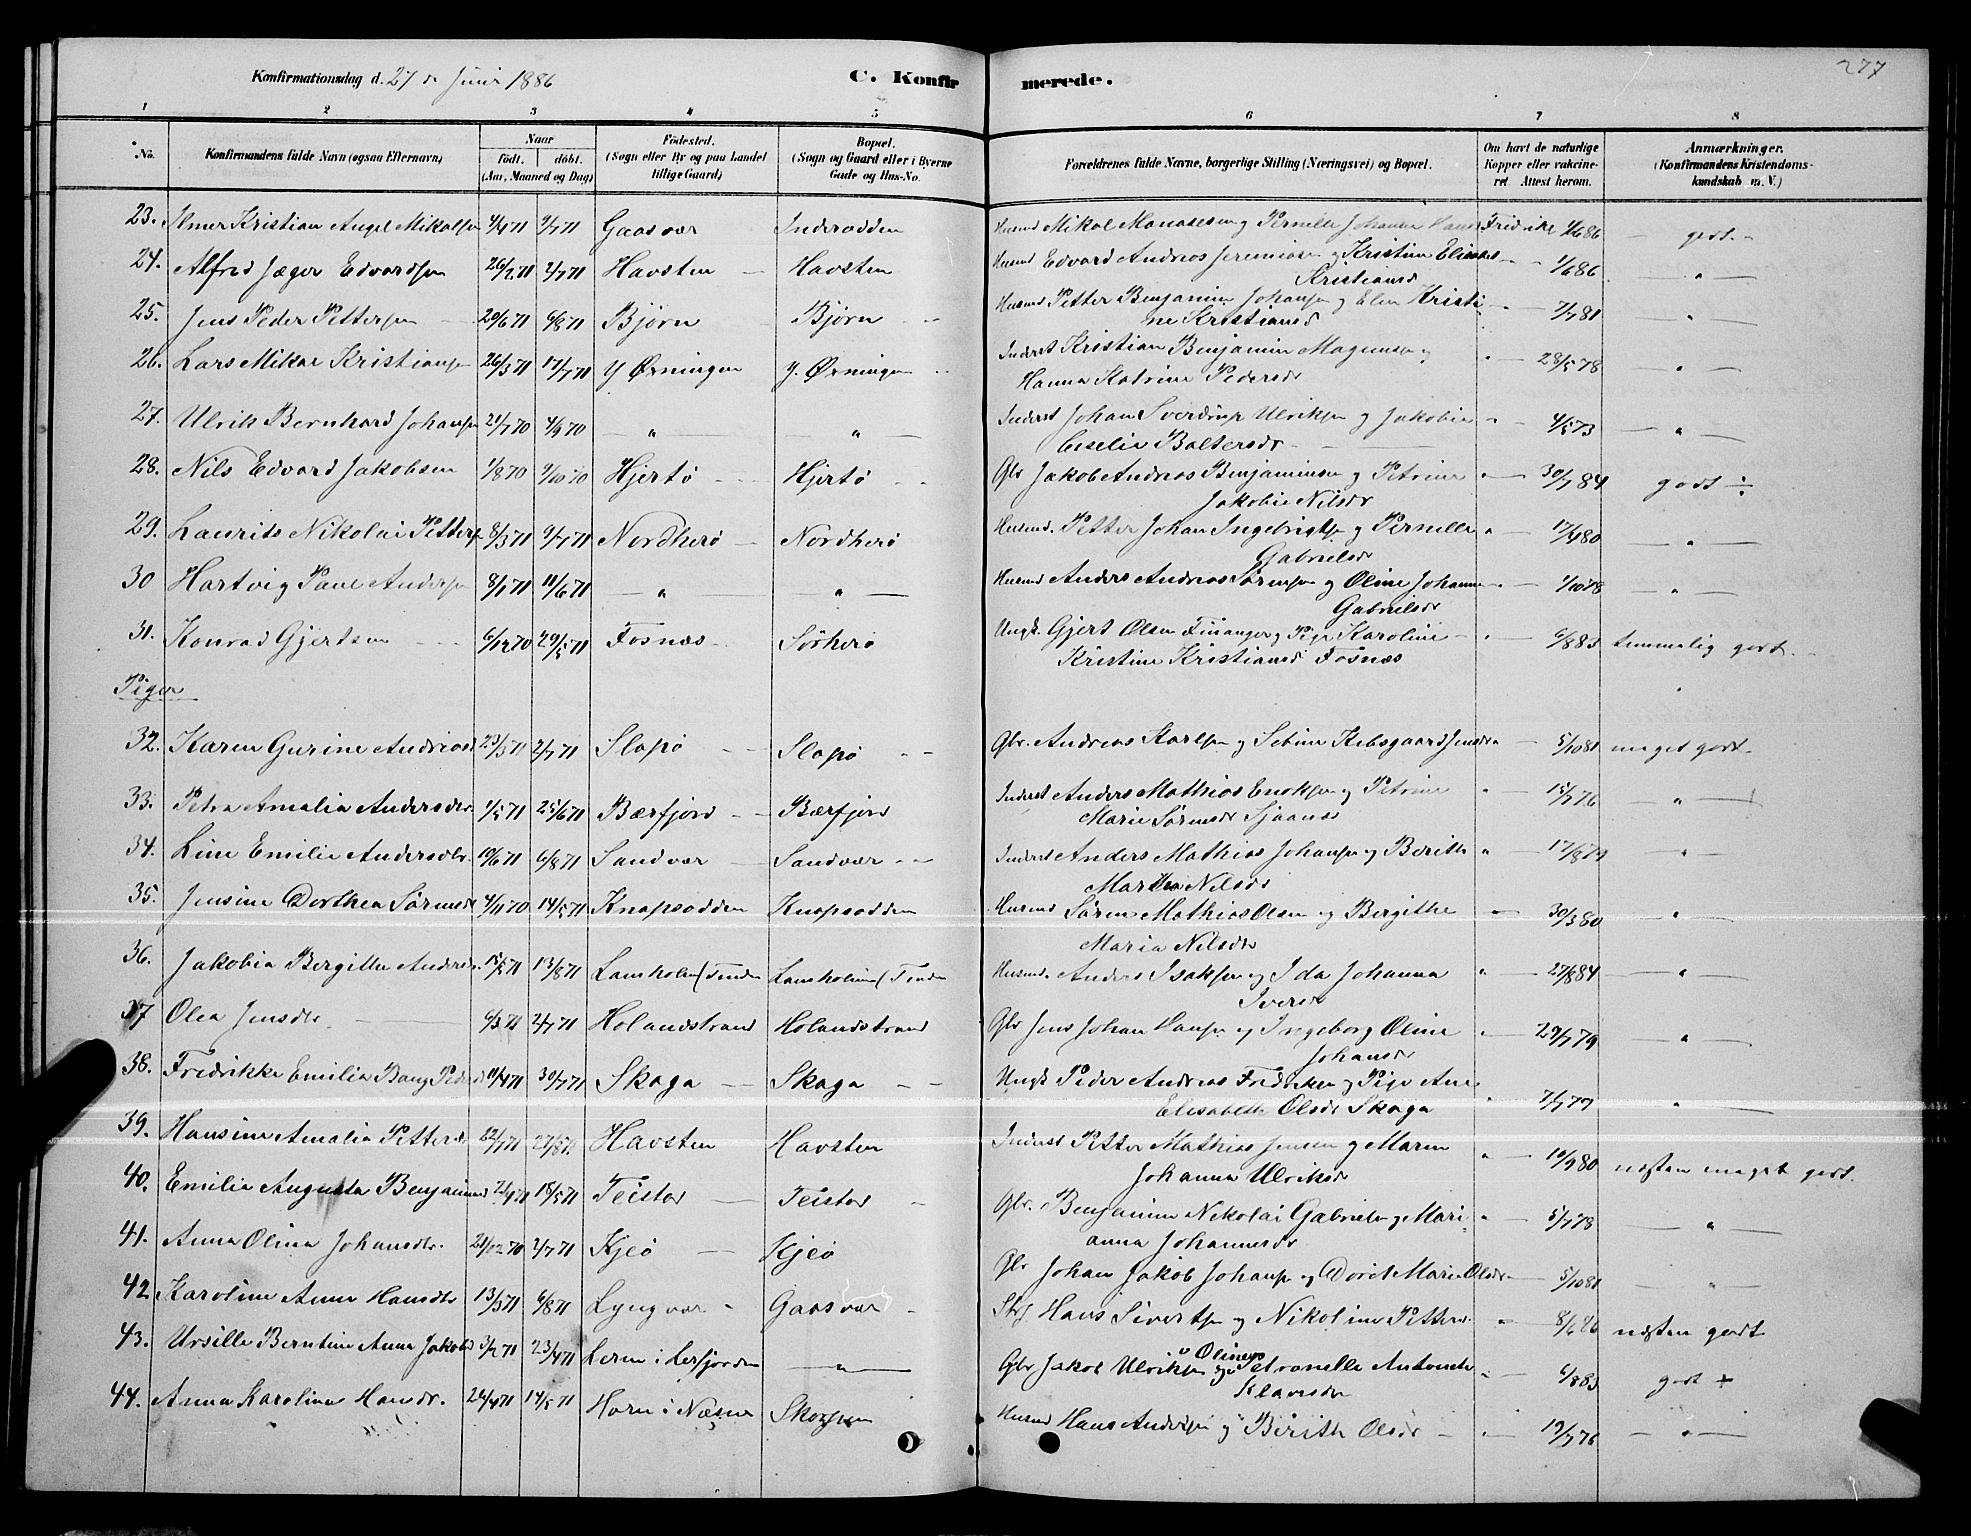 Konfirmationsdag d. 27 de Juni 1886
C. Konfirmerede.
277
1 2 3 4 5 6 7 8
No. Konfirmandens fulde Navn (ogsaa Efternavn) Naar født. døbt. (Aar, Maaned og Dag) Fødested. (Sogn eller By og paa Landet tillige Gaard) Bopæl. (Sogn og Gaard eller i Byerne Gade og Hus-No. Forældrenes fulde Navne, borgerlige Stilling (Næringsvei) og Bopæl. Om havt de naturlige Kopper eller vakcineret Attest herom. Anmærkninger. (Konfirmandens Kristendomskundskab m. V.)
23. Kristian Angel Mikalsen 4/4 71 2/7 71 Gaasvær Inderodden Husmd Mikal Manassesen og Pernille Johanna Fredrikke 1/686 — godt. -
24. Alfred Jæger Edvardsen 26/2 71 2/7 71 Havsten — Havsten Husmd Edvard Andreas Jeremiasen og Kristine Elisabet - - 1/686 — " —
Kristiansd
25. Jens Peder Pettersen 20/6 71 6/8 71 Bjørn Bjørn Husmd Petter Benjamin Johansen og Elen Kristi - 7/781 — " —
ne Kristiansd
26. Lars Mikal Kristiansen 26/3 71 17/7 71 Y Ørningen Y. Ørningen Inderst Kristian Benjamin Magnusen og " — 28/578 — " —
Hanna Katrine Pedersdr
27. Ulrik Bernhard Johansen 21/7 70 4/9 70 — " — — " — Inderst Johan Sverdrup Ulriksen og Jakobia " — 4/573 — " —
Ceselia Baltersdr
28. Nils Edvard Jakobsen 1/8 70 9/10 70 Hjertø Hjertø Gbr Jakob Andreas Benjaminsen og Petrine " — 30/784 godt ÷
Jakobie Nilsdr
29. Laurits Nikolai Pettersen 8/3 71 9/7 71 Nordherø Nordherø Husmd. Petter Johan Ingebrigtsen og Pernille " — 17/480 — " —
Gabrielsdr
30 Hartvig Paul Andersen 8/1 71 11/6 71 — " — — " — Husmd Anders Andreas Sørensen og Oline Johanna " — 1/1078 — " —
Gabrielsdr
31. Konrad Gjertsen 6/12 70 29/5 71 Fosnæs Sørherø Ungk. Gjert Olsen Finanger og Pige Karoline " 6/883 temmelig godt.
Kristine Kristiansd Fosnæs
Piger
32. Karen Gurine Andreasd 23/5 71 2/7 71 Slapø Slapø Gbr. Andreas Karlsen og Sebine Kebsgaard Jensdr " — 5/1081 meget godt.
33. Petra Amalia Andersdr. 1/5 71 25/6 71 Bærfjord Bærfjord Inderst Anders Mathias Enoksen og Petrine " — 15/776 — " —
Marie Sørensdr Sjaanæs
34. Line Emilie Andersdtr. 10/6 71 6/8 71 Sandvær Sandvær Inderst Anders Mathias Johansen og Berith " — 17/879 — " —
Martha Nilsdr
35. Jensine Dorthea Sørensdr 4/11 70 14/5 71 Knapsodden Knapsodden Husmd Søren Mathias Olsen og Bergithe " — 30/380 — " —
Maria Nilsdtr
36. Jakobia Bergitte Anders. 15/5 71 13/8 71 Lamholm (Tenden Lamholmen (Tenden Husmd. Anders Isaksen og Ida Johanna " — 27/884 — " —
Iversdr
37 Olea Jensdtr. 6/3 71 2/7 71 Holandstrand Holandstrand Gbr Jens Johan Hansen og Ingeborg Oline " — 29/779 — " —
Johansdr
38. Fredrikke Emilia Bang Pedersd 11/4 71 30/7 71 Skaga Skaga Ungk Peder Andreas Fredriksen og Pige Ane
Elisabeth Olsdr Skaga " — 7/777 — " —
39. Hansine Amalia Pettersdr. 22/7 71 27/8 71 Havsten Havsten Inderst Petter Mathias Jensen og Maren " — 10/980 næsten meget godt.
Johanna Ulriksdr
40. Emilie Augusta Benjamind 22/4 71 15/5 71 Teistad Teistad Gbr. Benjamin Nikolai Gabrielsen og Mari " — 5/778 — " —
anna Johannesdr
41. Anna Olina Johansdtr. 21/12 70 2/7 71 Kjeø Kjeø Gbr Johan Jakob Johansen og Doret Marie Olsdr — 5/1081 — " —
42. Karoline Anne Hansdtr 13/3 71 6/8 71 Lyngvær Gaasvær Hans Sivertsen og Nikoline Pettersd. " — 8/686 næsten godt
43. Ursille Berntine Anna Jakobsd 3/2 71 23/4 71 Leren i Lerfjorden — " — Gbr Jakob Ulriksen og Petronelle Antonette " — 6/883 godt +
Olines
Klausdr
44. Anna Karolina Hansdr. 24/4 71 14/5 71 Horn i Næsne Skorpen Husmd Hans Andersen og Berith Olsdr — " — 19/776 — " —